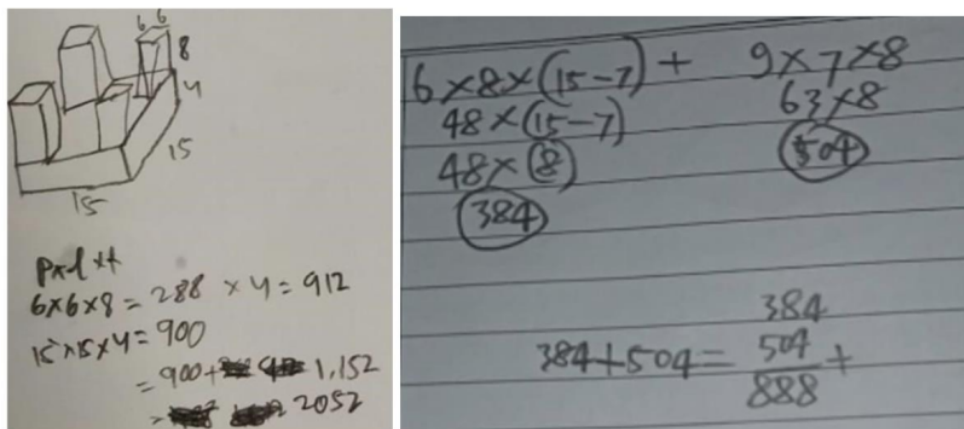 6 6
8
4
15
15
p x l x t
6 x 6 x 8 = 288 x 4 = 912
15 x 15 x 4 = 900
= 900 + 1,152
= 2052
6 x 8 x (15 - 7) + 9 x 7 x 8
48 x (15 - 7) 63 x 8
48 x (8) 504
384
384
384 + 504 = 504 +
888